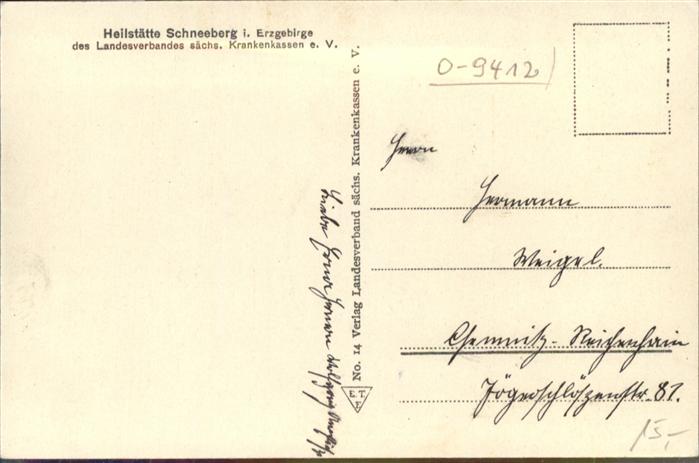 Heilstätte Schneeberg i. Erzgebirge
des Landesverbandes sächs. Krankenkassen e. V.
O-9412
No. 14 Verlag Landesverband sächs. Krankenkassen e. V.
E.T.
F
Herrn
Hermann
Weigel.
Chemnitz-Reichenhain
Jägerschlößchenstr. 81.
15,-